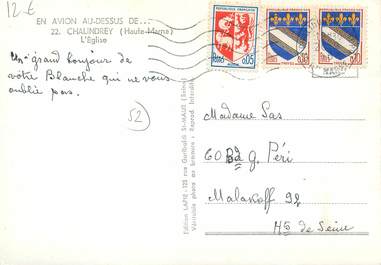 12 €
EN AVION AU-DESSUS DE...
22. CHALINDREY (Haute-Marne)
L'Eglise
un grand bonjour de
votre Blanche qui ne vous
oublie pas.
52
Edition LAPIE - 123 rue Garibaldi ST-MAUR (Seine)
Véritable photo au bromure - Reprod. Interdite
REPUBLIQUE FRANÇAISE
0,05
0,10
0,10
Madame Sas
60 Bd G. Péri
Malakoff 92
Hts de Seine